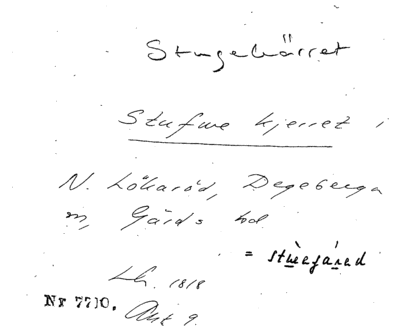 Stugekärret
Stufwe kjerret i
N. Lökaröd, Degeberga
sn, Gärds hd
= stuvejárad
Lh. 1818
Nr 7710. Akt 9.